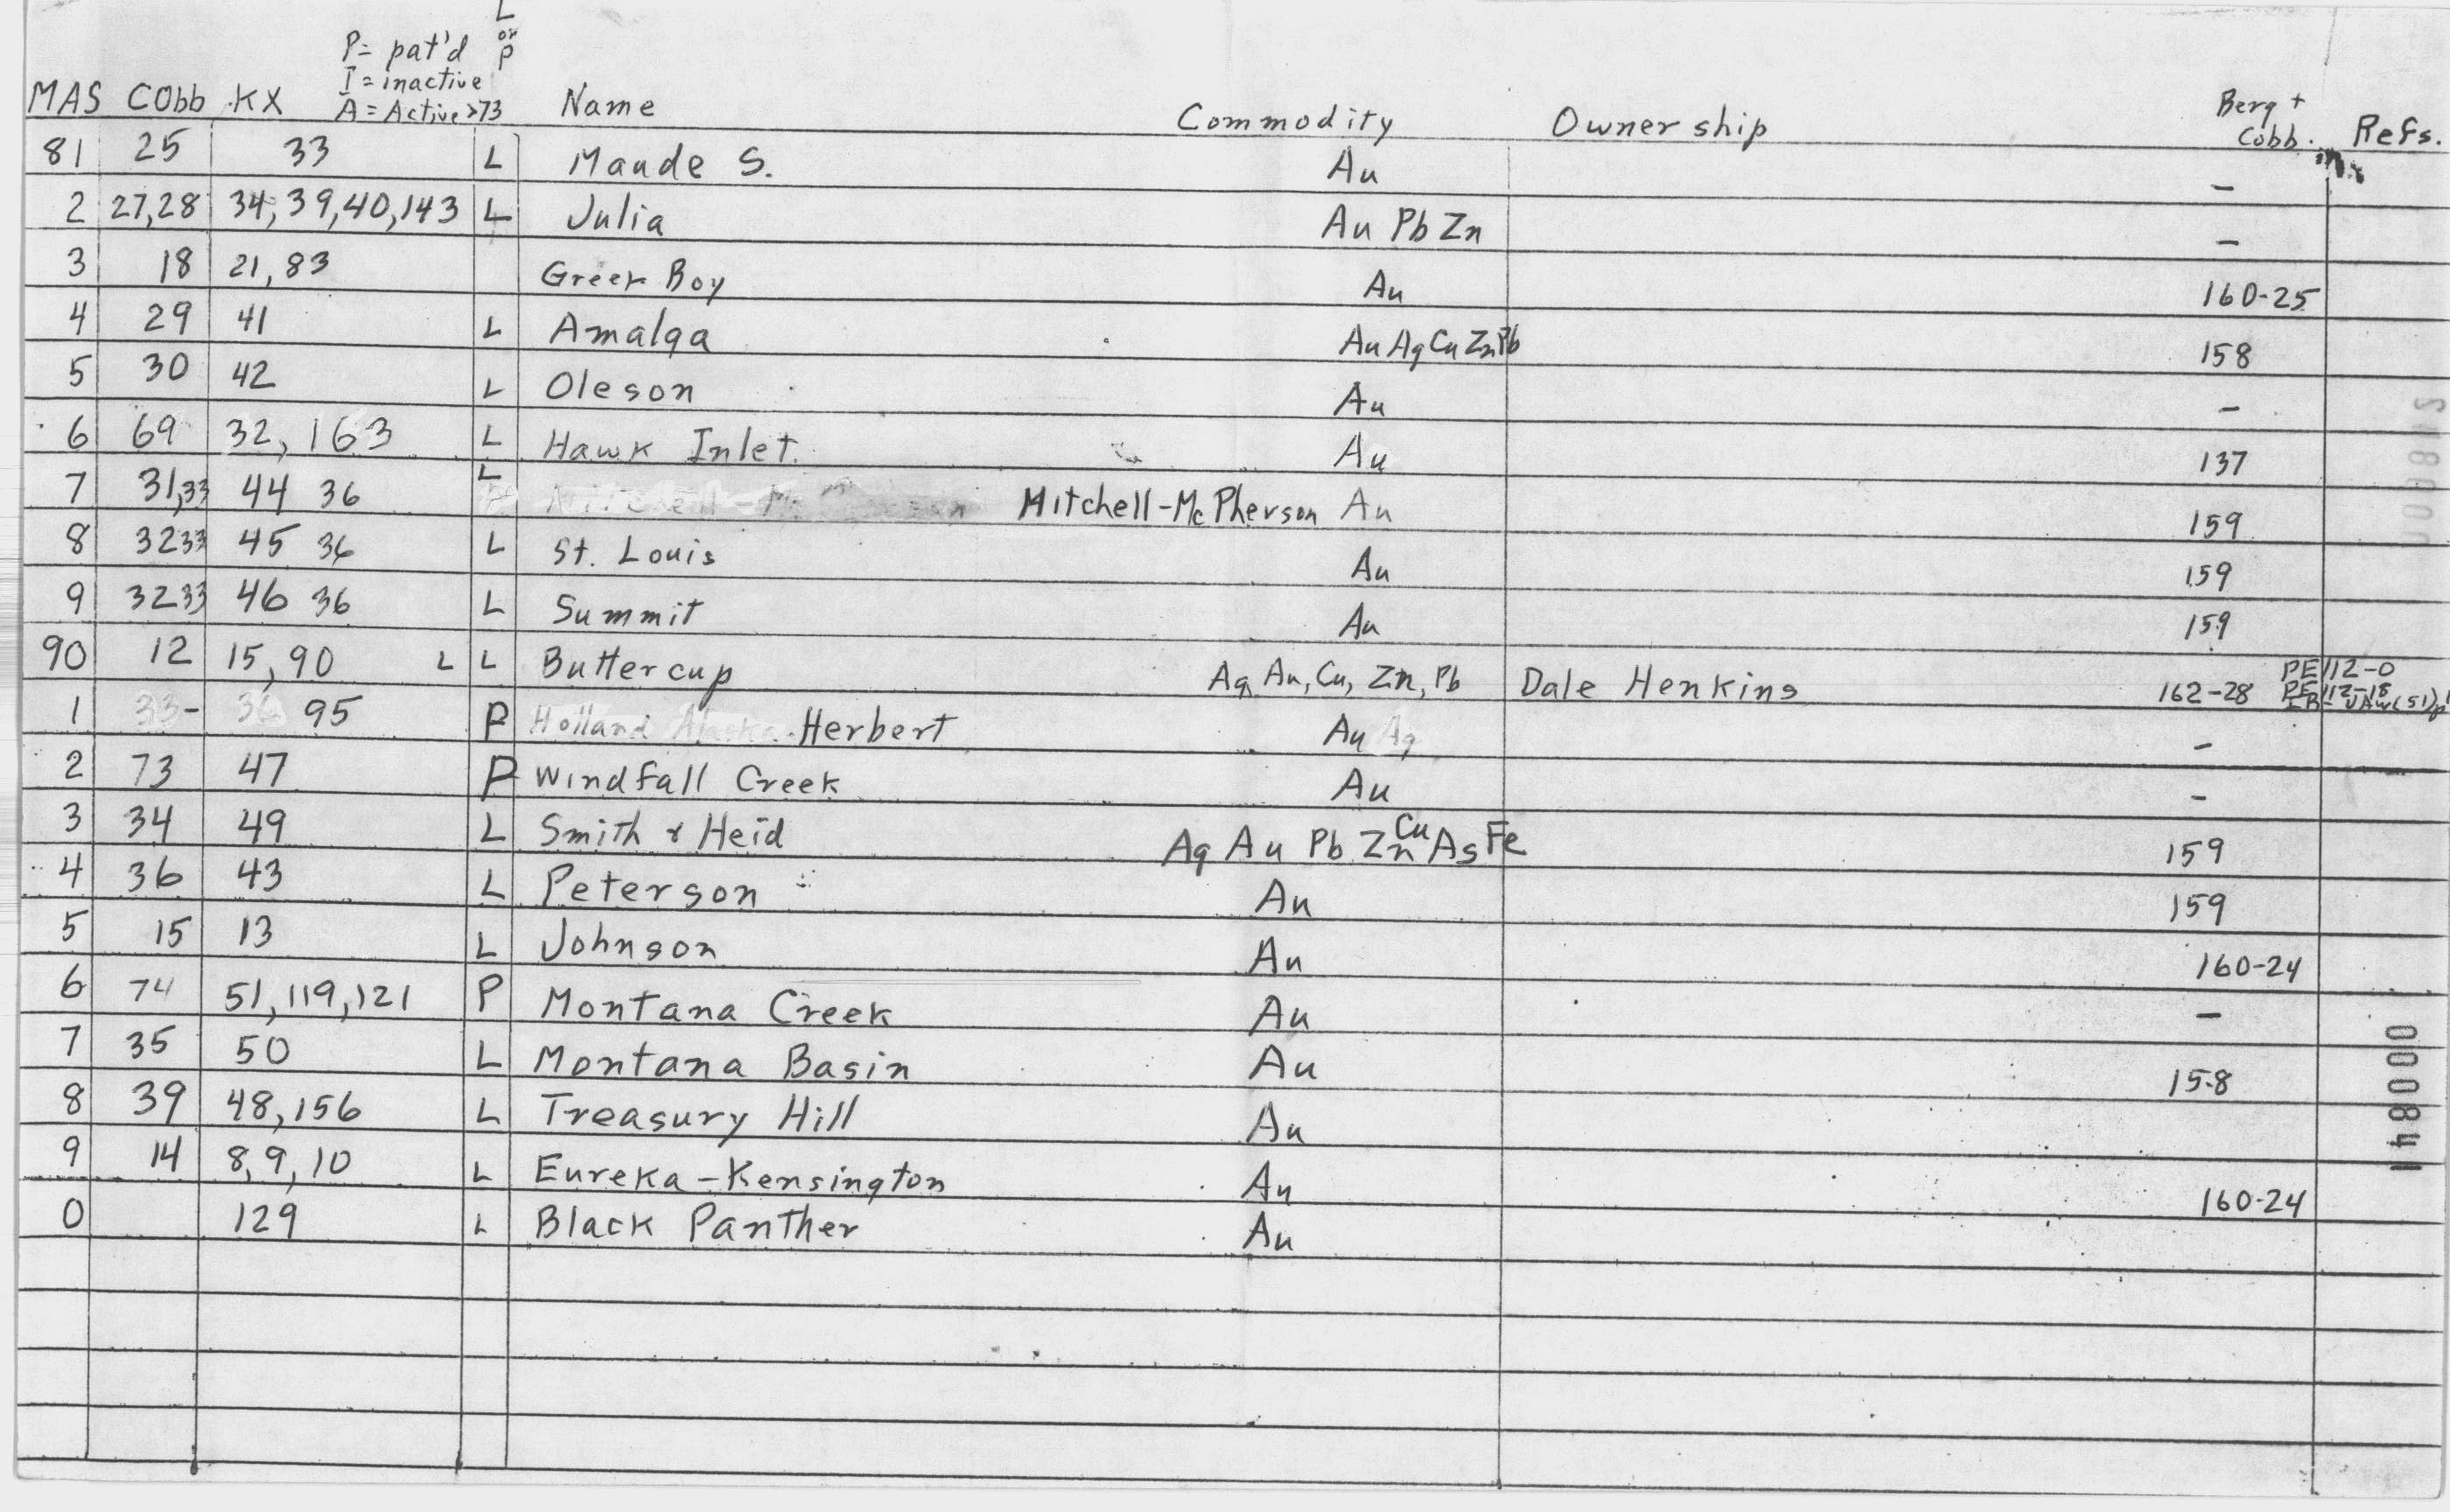 L or P
P= pat'd
I = inactive
A = Active >73
MAS Cobb KX Name Commodity Ownership Berg + Cobb. Refs.
81 25 33 L Maude S. Au –
2 27,28 34, 39, 40, 143 L Julia Au Pb Zn –
3 18 21, 83 Greek Boy Au 160-25
4 29 41 L Amalga Au Ag Cu Zn Pb 158
5 30 42 L Oleson Au –
6 69 32, 163 L Hawk Inlet. Au 137
7 31,33 44 36 L Mitchell-McPherson Au 159
8 32 33 45 36 L St. Louis Au 159
9 32 33 46 36 L Summit Au 159
90 12 15, 90 L L Buttercup Ag, Au, Cu, Zn, Pb Dale Henkins 162-28 PE 112-0
PE 112-18
1 33- 36 95 P Holland Alaska Herbert Au Ag –
2 73 47 P Windfall Creek Au –
3 34 49 L Smith & Heid Ag Au Pb Zn Cu As Fe 159
4 36 43 L Peterson Au 159
5 15 13 L Johnson Au 160-24
6 74 51, 119, 121 P Montana Creek Au –
7 35 50 L Montana Basin Au 158
8 39 48, 156 L Treasury Hill Au
9 14 8, 9, 10 L Eureka-Kensington Au 160-24
0 129 L Black Panther Au
000841